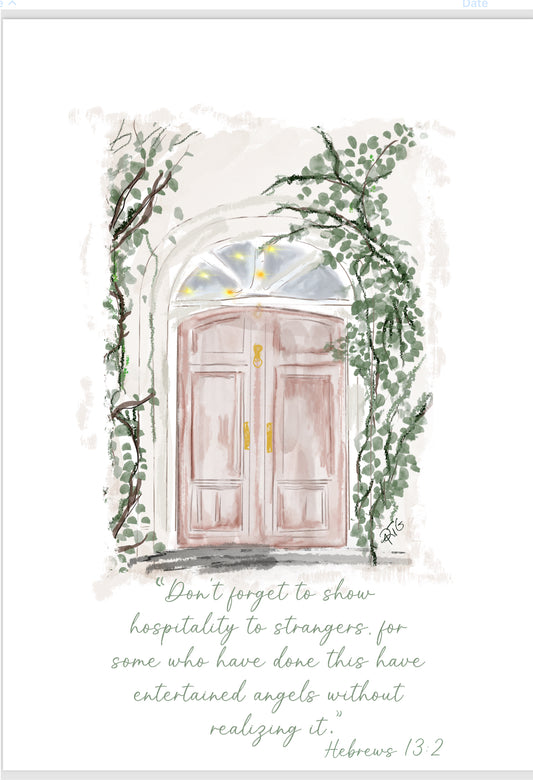 Date
“Don't forget to show
hospitality to strangers, for
some who have done this have
entertained angels without
realizing it.”
Hebrews 13:2